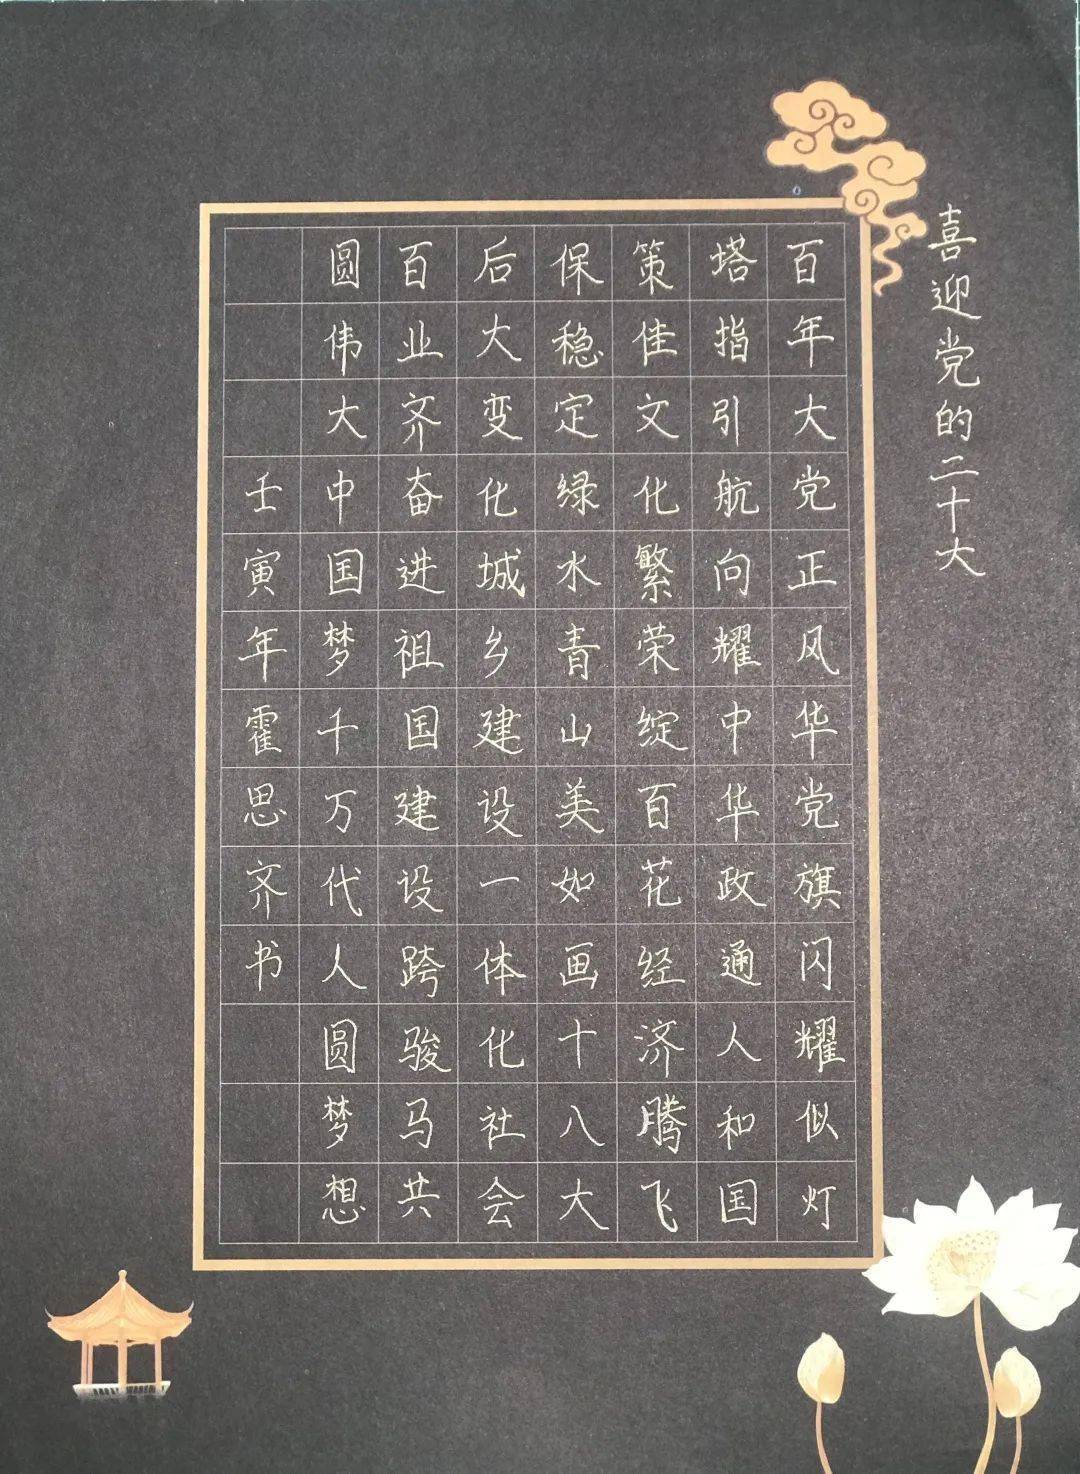 喜迎党的二十大
百年大党正风华党旗闪耀似灯
塔指引航向耀中华政通人和国
策佳文化繁荣绽百花经济腾飞
保稳定绿水青山美如画十八大
后大变化城乡建设一体化社会
百业齐奋进祖国建设跨骏马共
圆伟大中国梦千万代人圆梦想
壬寅年霍思齐书